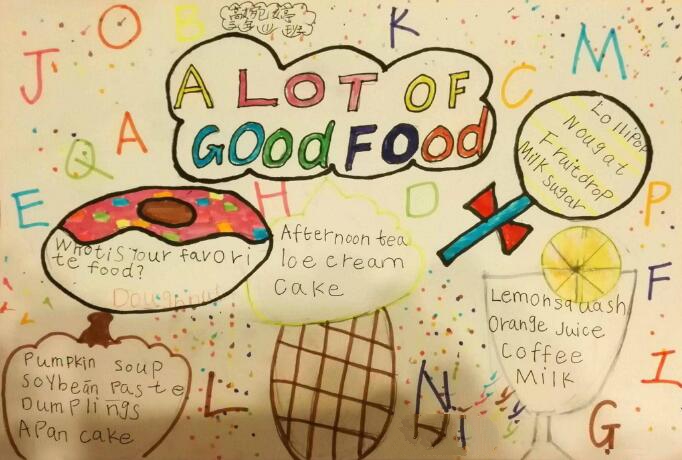 J
O
B
K
M
A LOT OF
GOOd FOOd
C
Q
A
E
H
D
P
F
L
N
I
G
Lollipop
Nougat
Fruitdrop
Milk sugar
What is your favori
te food?
Doughnut
Afternoon tea
Ice cream
Cake
Lemonsquash
Orange Juice
Coffee
Milk
Pumpkin soup
Soybean paste
Dumplings
A Pan cake